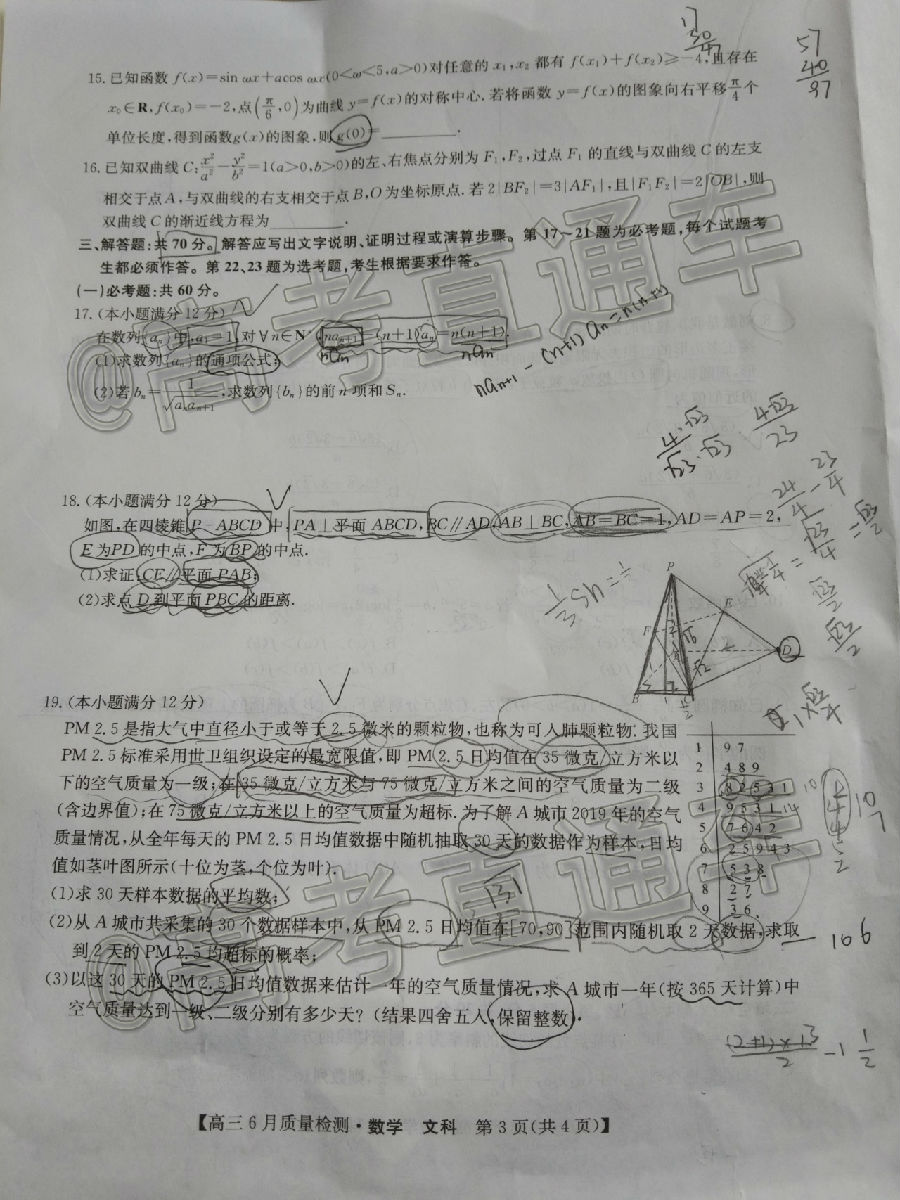 17
50
47
57
40
97
15.已知函数 f(x)=sin ωx+acos ωx(0<ω<5,a>0)对任意的 x₁,x₂ 都有 f(x₁)+f(x₂)≥−4,且存在
x₀∈R,f(x₀)=−2,点(π/6,0)为曲线 y=f(x)的对称中心.若将函数 y=f(x)的图象向右平移π/4个
单位长度,得到函数g(x)的图象,则g(0)=________.
16.已知双曲线 C:x²/a²−y²/b²=1(a>0,b>0)的左、右焦点分别为 F₁,F₂,过点 F₁ 的直线与双曲线 C 的左支
相交于点 A,与双曲线的右支相交于点 B,O为坐标原点.若 2|BF₂|=3|AF₁|,且|F₁F₂|=2|OB|,则
双曲线 C 的渐近线方程为________.
三、解答题:共 70 分。解答应写出文字说明、证明过程或演算步骤。第 17~21 题为必考题,每个试题考
生都必须作答。第 22、23 题为选考题,考生根据要求作答。
(一)必考题:共 60 分。
17.(本小题满分 12 分)
在数列{aₙ}中,a₁=1,对∀n∈N*,naₙ₊₁−(n+1)aₙ=n(n+1).
naₙ₊₁−(n+1)aₙ=n(n+1)
(1)求数列{aₙ}的通项公式;
(2)若 bₙ=1/√(aₙaₙ₊₁),求数列{bₙ}的前 n 项和 Sₙ.
4·√23
√23·√23
4√23
23
18.(本小题满分 12 分)
如图,在四棱锥 P−ABCD 中,PA⊥平面 ABCD,BC∥AD,AB⊥BC,AB=BC=1,AD=AP=2,
E 为PD 的中点,F 为BP 的中点.
(1)求证:CE∥平面 PAB;
(2)求点 D 到平面 PBC 的距离.
P
E
F
D
B
19.(本小题满分 12 分)
PM 2.5 是指大气中直径小于或等于 2.5 微米的颗粒物,也称为可入肺颗粒物.我国
PM 2.5 标准采用世卫组织设定的最宽限值,即 PM 2.5 日均值在 35 微克/立方米以
下的空气质量为一级;在 35 微克/立方米与 75 微克/立方米之间的空气质量为二级
(含边界值);在 75 微克/立方米以上的空气质量为超标.为了解 A 城市 2019 年的空气
质量情况,从全年每天的 PM 2.5 日均值数据中随机抽取 30 天的数据作为样本,日均
值如茎叶图所示(十位为茎,个位为叶).
1 9 7
2 4 8 9
3 8 2 5 3 1
4 9 5 3 1
5 7 6 4 2
6 2 5 9 4 3
7 5 3 8
8 2 7
9 3 6
(1)求 30 天样本数据的平均数;
(2)从 A 城市共采集的 30 个数据样本中,从 PM 2.5 日均值在[70,90]范围内随机取 2 天数据,求取
到 2 天的 PM 2.5 均超标的概率;
(3)以这 30 天的 PM 2.5 日均值数据来估计一年的空气质量情况,求 A 城市一年(按 365 天计算)中
空气质量达到一级、二级分别有多少天?(结果四舍五入,保留整数).
131
106
【高三 6 月质量检测·数学 文科 第 3 页(共 4 页)】
@高考直通车
@高考直通车